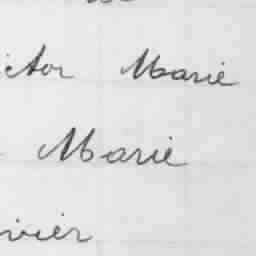 ictor Marie
Marie
ivier